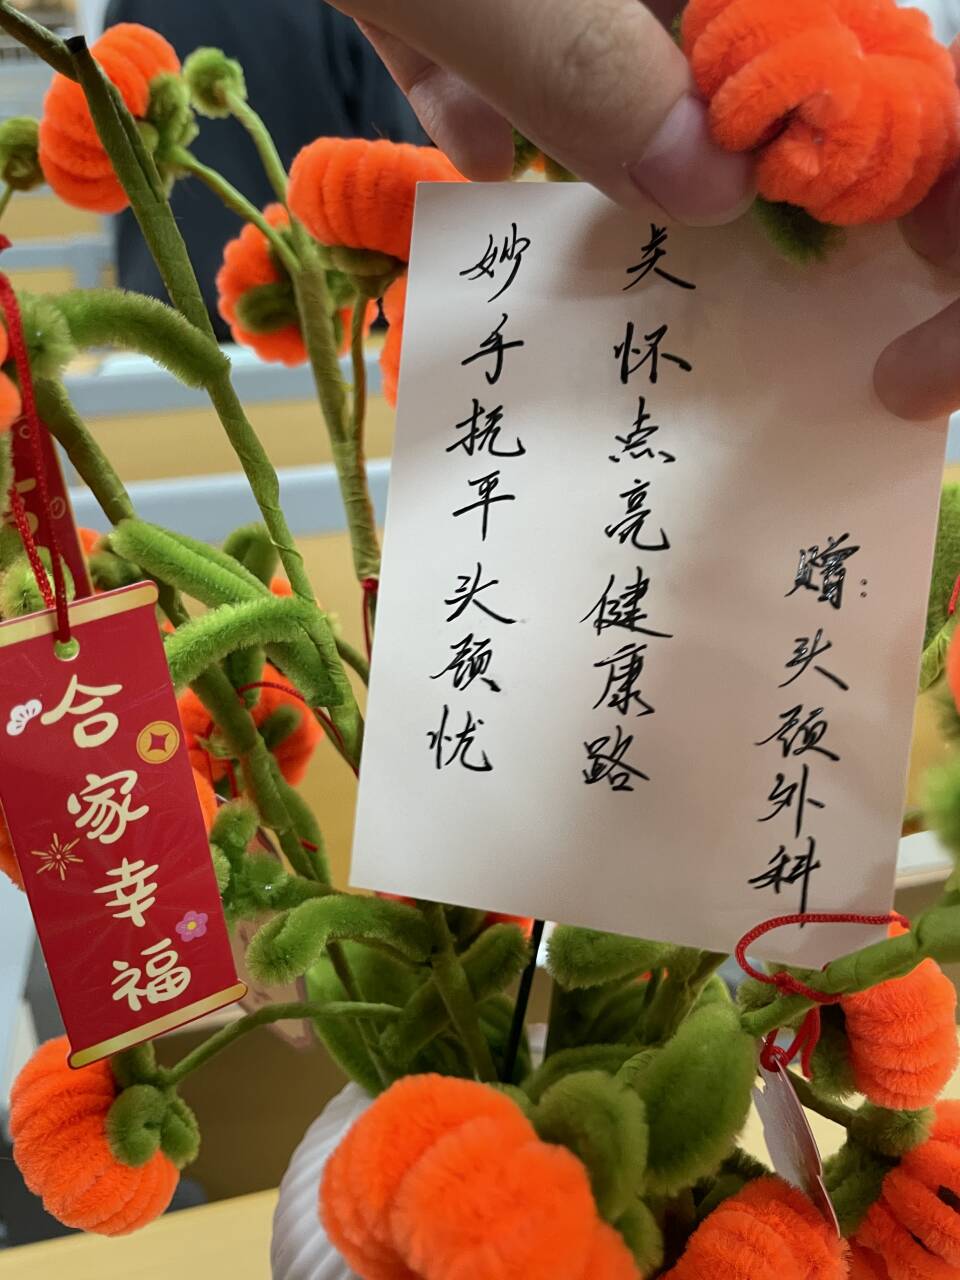 赠:头颈外科
关怀点亮健康路
妙手抚平头颈忧
合家幸福